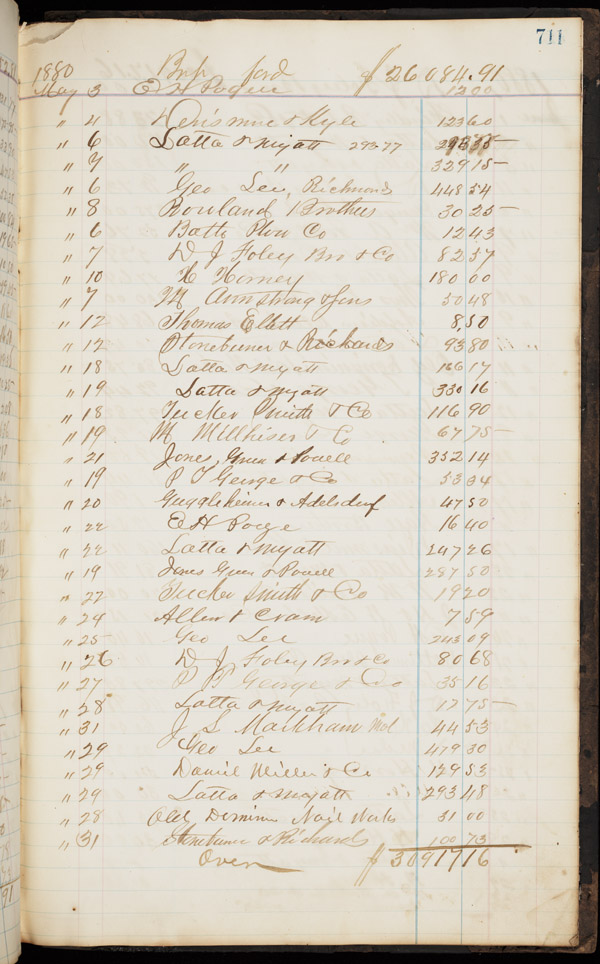 711
1880 Brt ford $26084.91
May 3 E H Pogue 12 00
" 4 & Kyle 123 60
" 6 Latta & Myatt 293 77
" 7 " " 329 15
" 6 Geo Lee, Richmond 448 54
" 8 Rowland Brothers 30 25
" 6 Bath Plow Co 12 43
" 7 D J Foley Bro & Co 82 57
" 10 Horney 180 00
" 7 M Armstrong & Sons 50 48
" 12 Thomas Ellett 8,50
" 12 Stonebruner & Richards 93 80
" 18 Latta & Myatt 166 17
" 19 Latta & Myatt 330 16
" 18 Tucker Smith & Co 116 90
" 19 M Millhiser & Co 67 75
" 21 Jones, Gunn & Powell 352 14
" 19 P T George & Co 53 34
" 20 Guggleheimer & Adelsdorf 47 50
" 22 E H Poage 16 40
" 22 Latta & Myatt 247 26
" 19 Jones Gunn & Powell 287 50
" 27 Tucker Smith & Co 19 20
" 24 Allen & Cram 7 59
" 25 Geo Lee 243 09
" 26 D J Foley Bro & Co 80 68
" 27 P T George & Co 35 16
" 28 Latta & Myatt 17 75
" 31 J S Markham 44 53
" 29 Geo Lee 479 30
" 29 Daniel Miller & Co 129 53
" 29 Latta & Myatt 293 48
" 28 Old Dominion Nail Works 31 00
" 31 Stonebruner & Richards 100 73
Over $30917 16